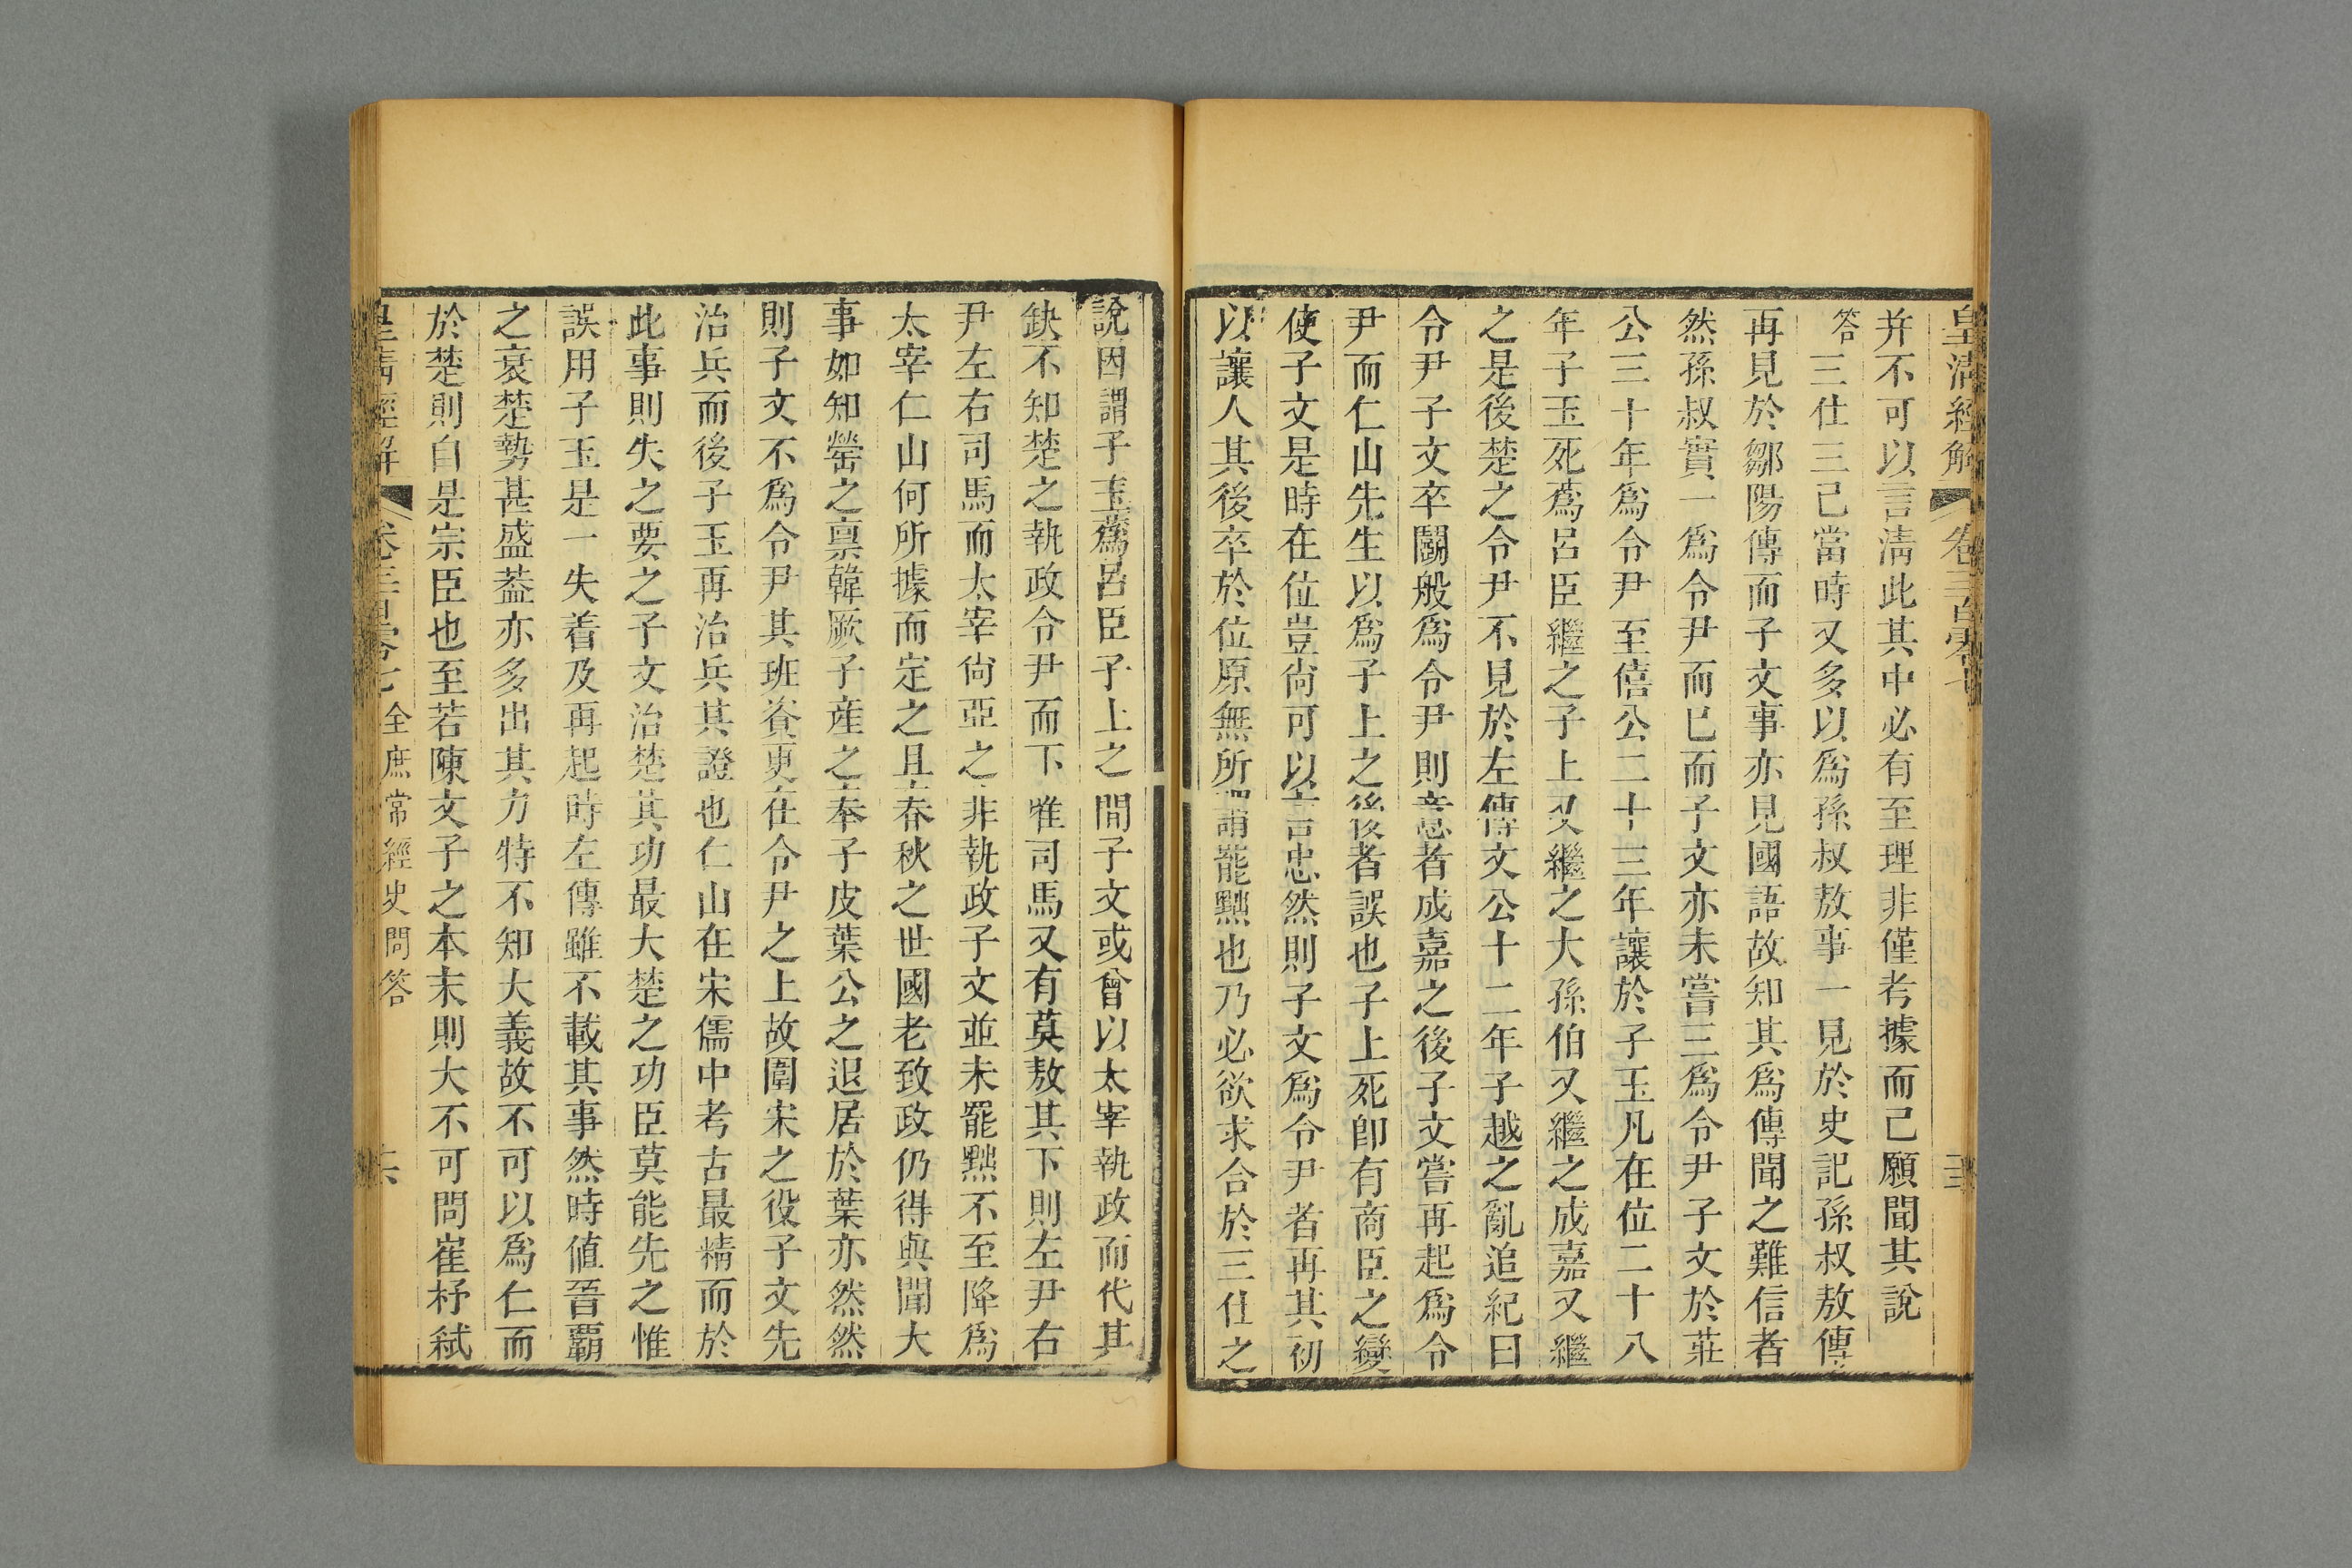 皇清經解 卷三百零七
并不可以言淸此其中必有至理非僅考據而已願聞其說
答三仕三已當時又多以爲孫叔敖事一見於史記孫叔敖傳
再見於鄒陽傳而子文事亦見國語故知其爲傳聞之難信者
然孫叔實一爲令尹而已而子文亦未嘗三爲令尹子文於莊
公三十年爲令尹至僖公二十三年讓於子玉凡在位二十八
年子玉死蔿呂臣繼之子上又繼之大孫伯又繼之成嘉又繼
之是後楚之令尹不見於左傳文公十二年子越之亂追紀曰
令尹子文卒鬭般爲令尹則意者成嘉之後子文嘗再起爲令
尹而仁山先生以爲子上之後者誤也子上死卽有商臣之變
使子文是時在位豈尙可以言忠然則子文爲令尹者再其初
以讓人其後卒於位原無所謂罷黜也乃必欲求合於三仕之
說因謂子玉蔿呂臣子上之間子文或曾以太宰執政而代其
缺不知楚之執政令尹而下惟司馬又有莫敖其下則左尹右
尹左右司馬而太宰尙亞之非執政子文並未罷黜不至降爲
太宰仁山何所據而定之且春秋之世國老致政仍得與聞大
事如知罃之禀韓厥子產之奉子皮葉公之退居於葉亦然然
則子文不爲令尹其班資更在令尹之上故圍宋之役子文先
治兵而後子玉再治兵其證也仁山在宋儒中考古最精而於
此事則失之要之子文治楚其功最大楚之功臣莫能先之惟
誤用子玉是一失着及再起時左傳雖不載其事然時値晉霸
之衰楚勢甚盛葢亦多出其力特不知大義故不可以爲仁而
於楚則自是宗臣也至若陳文子之本末則大不可問崔杼弑
皇淸經解 卷三百零七 全庶常經史問答